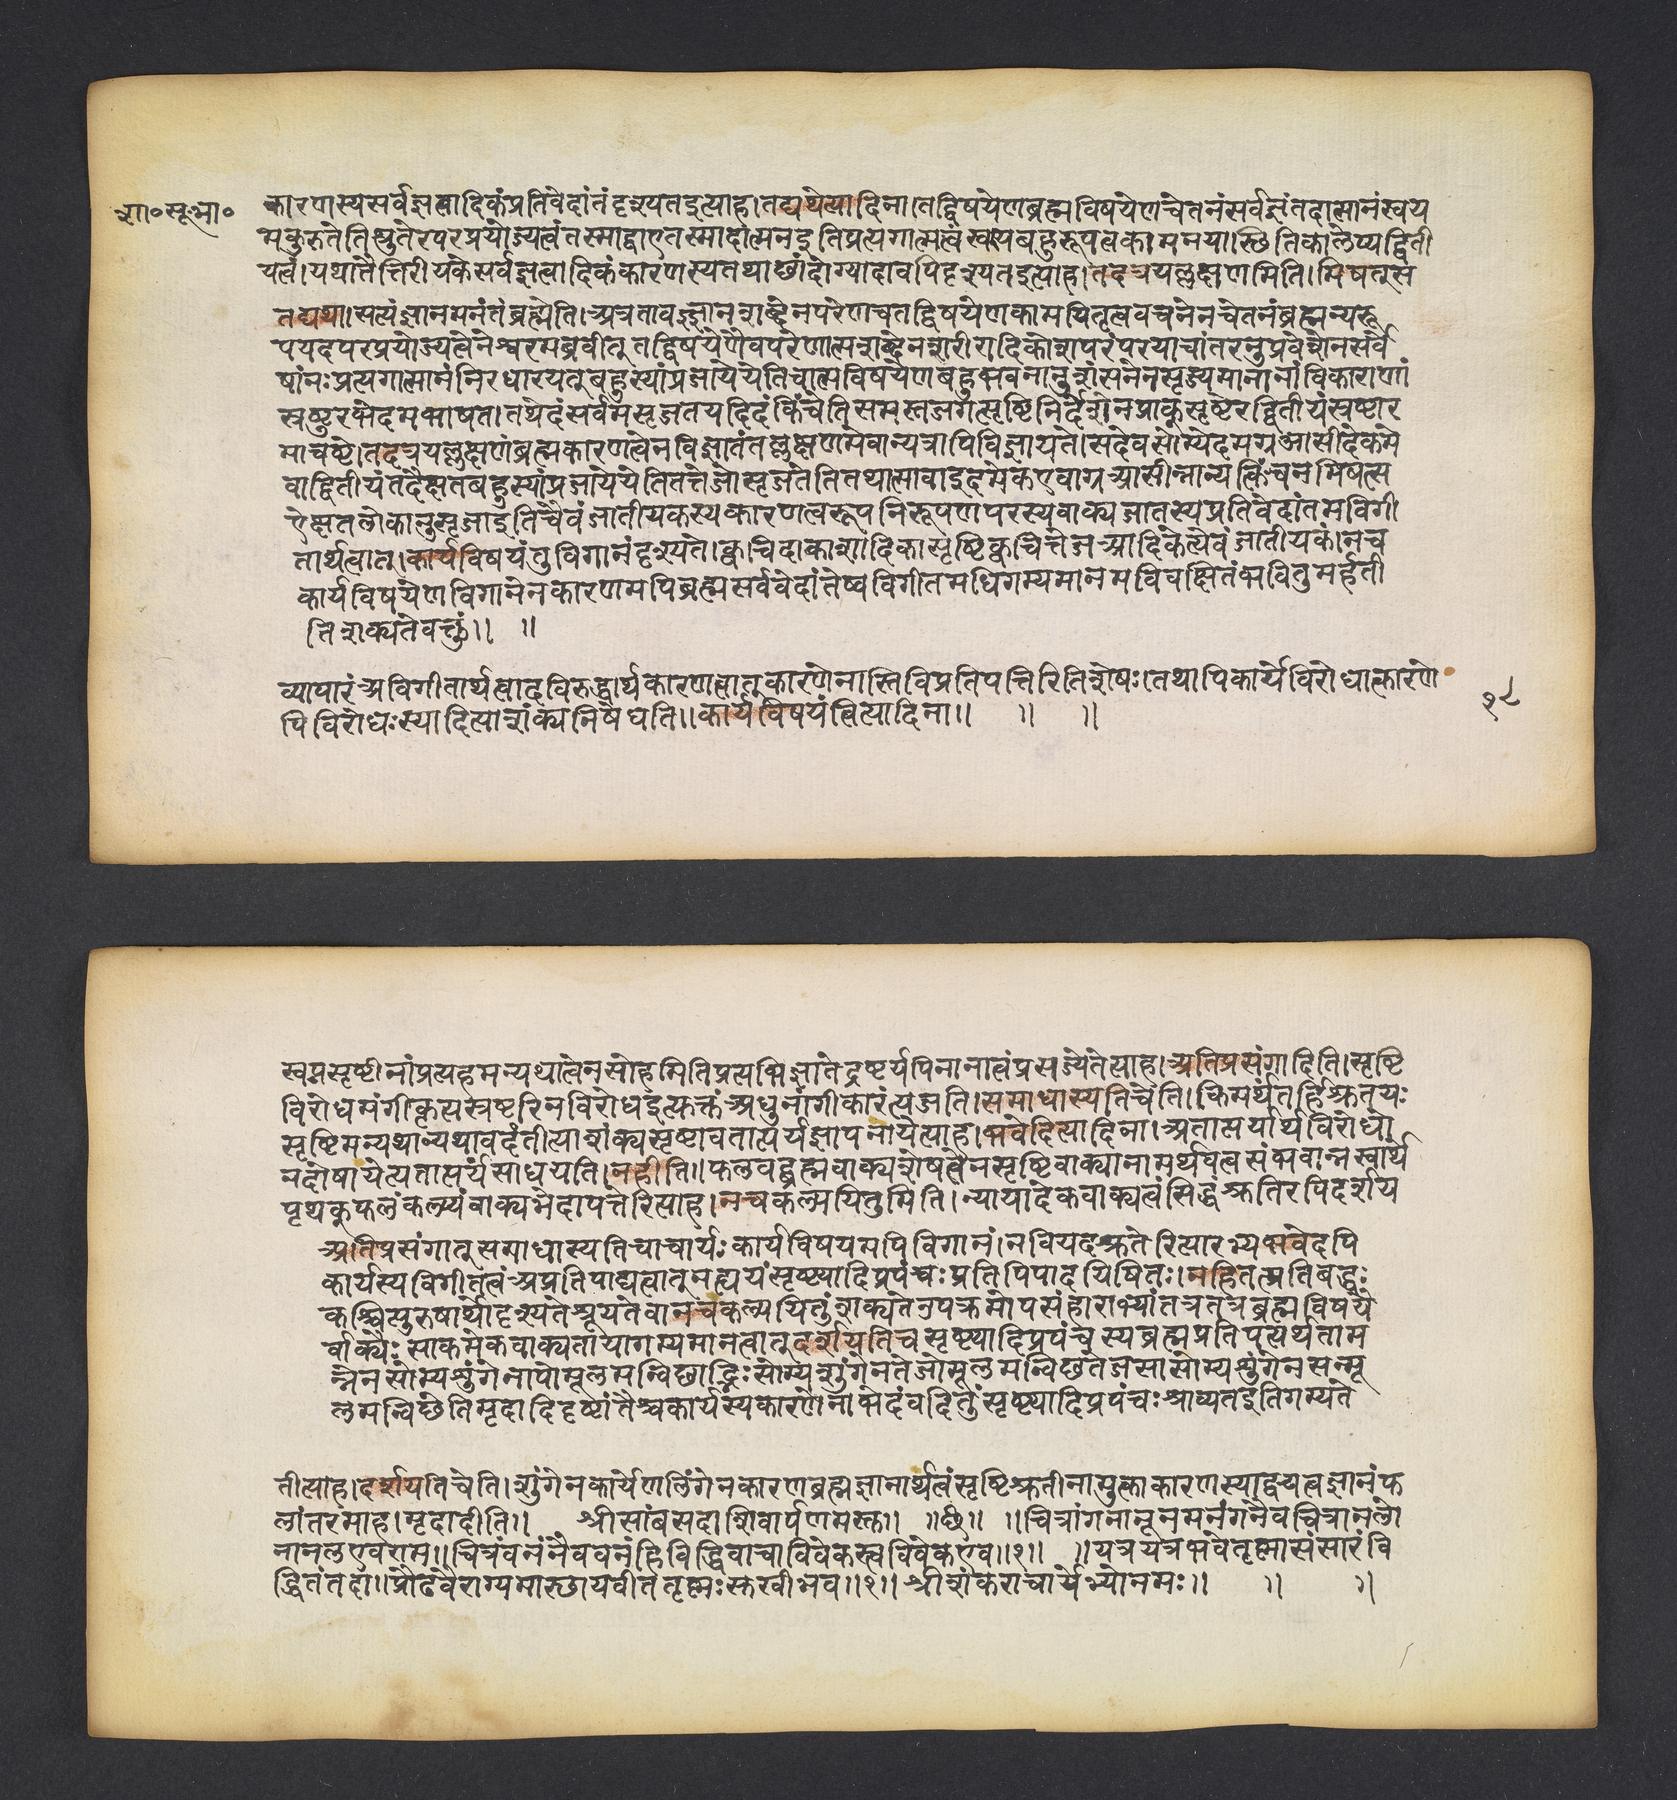 शा॰सू॰भा॰
कारणस्यसर्वज्ञत्वादिकंप्रतिवेदांतंदृश्यतइत्याह।तद्यथेत्यादिना।तद्विषयेणब्रह्मविषयेणचेतनंसर्वज्ञंतदात्मानंस्वय
मकुरुतेतिश्रुतेरपरप्रयोज्यत्वंतस्माद्वाएतस्मादात्मनइतिप्रत्यगात्मत्वंस्वस्यबहुरूपत्वकामनयास्थितिकालेप्यद्विती
यत्वं।यथातैत्तिरीयकेसर्वज्ञत्वादिकंकारणस्यतथाछांदोग्यादावपिदृश्यतइत्याह।तदत्रयल्लक्षणमिति।मिषत्स
तद्यथा।सत्यंज्ञानमनंतंब्रह्मेति।अत्रतावज्ज्ञानशब्देनपरेणचतद्विषयेणकामयितृत्ववचनेनचेतनंब्रह्मन्यरू
पयदपरप्रयोज्यत्वेनेश्वरमब्रवीत्तद्विषयेणैवपरेणात्मशब्देनशरीरादिकोशपरंपरयाचांतरनुप्रवेशेनसर्वे
षांनःप्रत्यगात्मानंनिरधारयत्बहुस्यांप्रजायेयेतिचात्मविषयेणबहुभवनानुशंसनेनसृज्यमानानांविकाराणां
स्रष्टुरभेदमभाषत।तथेदंसर्वमसृजतयदिदंकिंचेतिसमस्तजगत्सृष्टिनिर्देशेनप्राक्सृष्टेरद्वितीयंस्रष्टार
माचष्टे।तदत्रयल्लक्षणंब्रह्मकारणत्वेनविज्ञातंतल्लक्षणमेवान्यत्रापिविज्ञायते।सदेवसोम्येदमग्रआसीदेकमे
वाद्वितीयंतदैक्षतबहुस्यांप्रजायेयेतितत्तेजोसृजतेतितथात्मावाइदमेकएवाग्रआसीन्नान्यत्किंचनमिषत्स
ऐक्षतलोकान्नुसृजाइतिचैवंजातीयकस्यकारणत्वरूपनिरूपणपरस्यवाक्यजातस्यप्रतिवेदांतमविगी
तार्थत्वात्।कार्यविषयंतुविगानंदृश्यते।क्वचिदाकाशादिकासृष्टिःक्वचित्तेजआदिकेत्येवंजातीयकं।नच
कार्यविषयेणविगानेनकारणमपिब्रह्मसर्ववेदांतेष्वविगीतमधिगम्यमानमविवक्षितंभवितुमर्हती
तिशक्यतेवक्तुं।। ॥
व्यापारंअविगीतार्थत्वादविरुद्धार्थकारणत्वात्कारणेनास्तिविप्रतिपत्तिरितिशेषः।तथापिकार्येविरोधात्कारणे
पिविरोधःस्यादित्याशंक्यनिषेधति।।कार्यविषयंत्वित्यादिना।। ॥ ॥
२८
स्वप्नसृष्टीनांप्रत्यहमन्यथात्वेनसोहमितिप्रत्यभिज्ञातेद्रष्टर्यपिनानात्वंप्रसज्येतेत्याह।अतिप्रसंगादिति।सृष्टि
विरोधमंगीकृत्यस्रष्टरिनविरोधइत्युक्तंअधुनांगीकारंत्यजति।समाधास्यतिचेति।किमर्थंतर्हिश्रुतयः
सृष्टिमन्यथान्यथावदंतीत्याशंक्यसृष्टावतात्पर्यज्ञापनायेत्याह।भवेदित्यादिना।अतात्पर्यार्थविरोधो
नदोषायेत्यतात्पर्यंसाधयति।नहीति।।फलवद्ब्रह्मवाक्यशेषत्वेनसृष्टिवाक्यानामर्थवत्वसंभवान्नस्वार्थे
पृथक्फलंकल्प्यंवाक्यभेदापत्तेरित्याह।नचकल्पयितुमिति।न्यायादेकवाक्यत्वंसिद्धंश्रुतिरपिदर्शय
अतिप्रसंगात्समाधास्यतिचाचार्यःकार्यविषयमपिविगानं।नवियदश्रुतेरित्यारभ्यभवेदपि
कार्यस्यविगीतत्वंअप्रतिपाद्यत्वात्नह्ययंसृष्ट्यादिप्रपंचःप्रतिपिपादयिषितः।नहितत्प्रतिबद्धः
कश्चित्पुरुषार्थोदृश्यतेश्रूयतेवानचकल्पयितुंशक्यतेउपक्रमोपसंहाराभ्यांतत्रतत्रब्रह्मविषयै
र्वाक्यैःसाकमेकवाक्यतायागम्यमानत्वात्दर्शयतिचसृष्ट्यादिप्रपंचस्यब्रह्मप्रतिपत्यर्थताम
न्नेनसोम्यशुंगेनापोमूलमन्विछाद्भिःसोम्यशुंगेनतेजोमूलमन्विछतेजसासोम्यशुंगेनसन्मू
लमन्विछेतिमृदादिदृष्टांतैश्चकार्यस्यकारणेनाभेदंवदितुंसृष्ट्यादिप्रपंचःश्राव्यतइतिगम्यते
तीत्याह।दर्शयतिचेति।शुंगेनकार्येणलिंगेनकारणब्रह्मज्ञानार्थत्वंसृष्टिश्रुतीनामुक्त्वाकारणस्याद्वयत्वज्ञानंफ
लांतरमाह।मृदादीति।। श्रीसांबसदाशिवार्पणमस्तु।। ॥छ॥ ॥चित्रांगनानूनमनंगनैवचित्रानलो
नानलएवराम।।चित्रंवनंनैववनंहिविद्धिवाचाविवेकस्त्वविवेकएव।।१।। ॥यत्रयत्रभवेतृष्णासंसारंवि
द्धितंतदा।।प्रौढवैराग्यमास्थायवीततृष्णःसुखीभव।।२।।श्रीशंकराचार्येभ्योनमः।। ॥ ॥